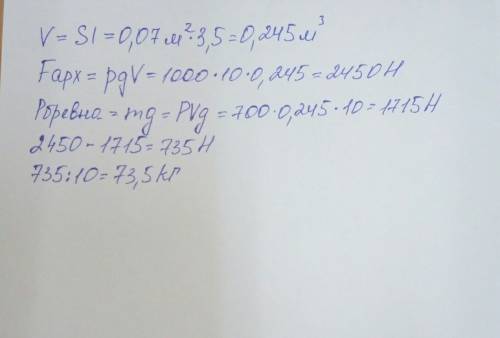 V = Sl = 0,07 м²·3,5 = 0,245 м³
Fарх = pgV = 1000·10·0,245 = 2450 Н
Рбревна = mg = PVg = 700·0,245·10 = 1715 Н
2450 - 1715 = 735 Н
735:10 = 73,5 кг